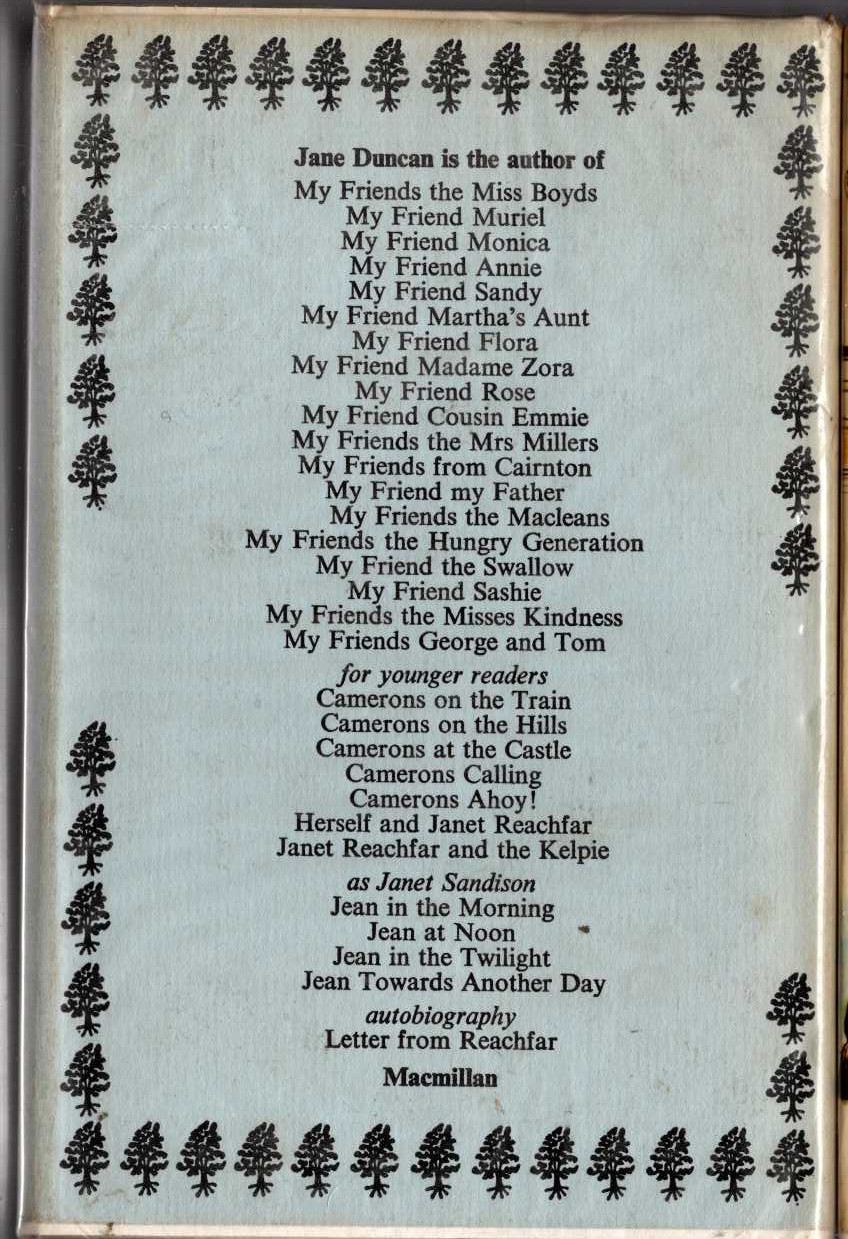 Jane Duncan is the author of
My Friends the Miss Boyds
My Friend Muriel
My Friend Monica
My Friend Annie
My Friend Sandy
My Friend Martha's Aunt
My Friend Flora
My Friend Madame Zora
My Friend Rose
My Friend Cousin Emmie
My Friends the Mrs Millers
My Friends from Cairnton
My Friend my Father
My Friends the Macleans
My Friends the Hungry Generation
My Friend the Swallow
My Friend Sashie
My Friends the Misses Kindness
My Friends George and Tom
for younger readers
Camerons on the Train
Camerons on the Hills
Camerons at the Castle
Camerons Calling
Camerons Ahoy!
Herself and Janet Reachfar
Janet Reachfar and the Kelpie
as Janet Sandison
Jean in the Morning
Jean at Noon
Jean in the Twilight
Jean Towards Another Day
autobiography
Letter from Reachfar
Macmillan